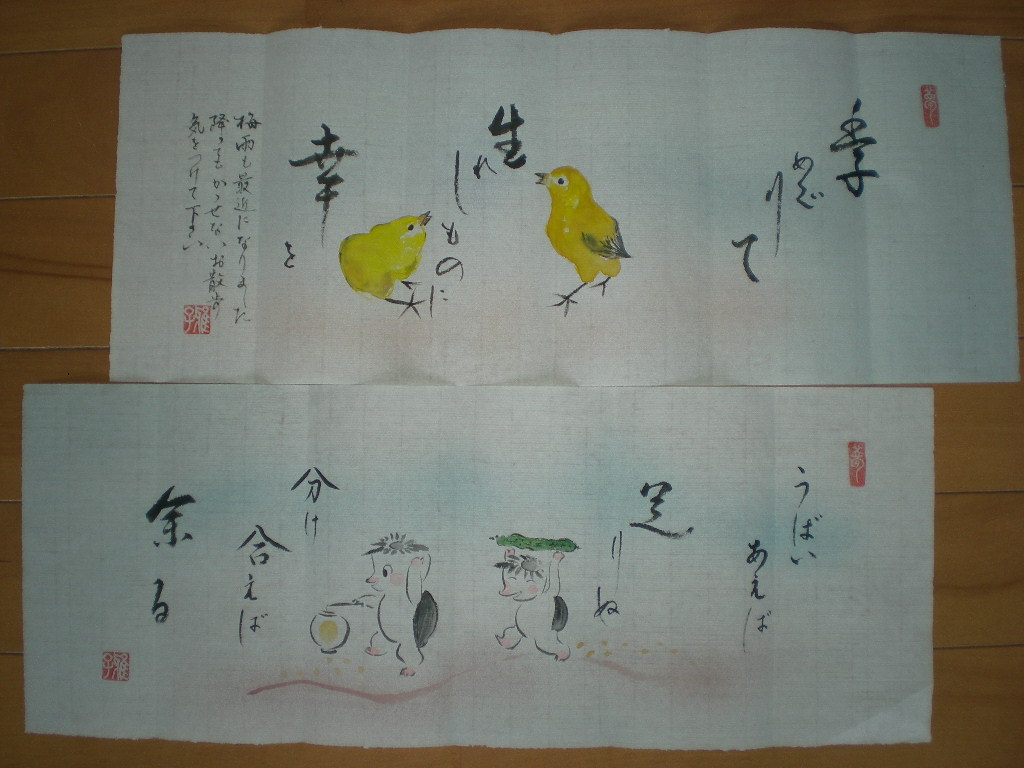 季
めぐ
りて
生
れ
し
ものに
幸
を
梅雨も最近になりました
降ってもかっせないお散歩
気をつけて下さい
雅子
うばい
あえば
足
りぬ
分け
合えば
余る
雅子